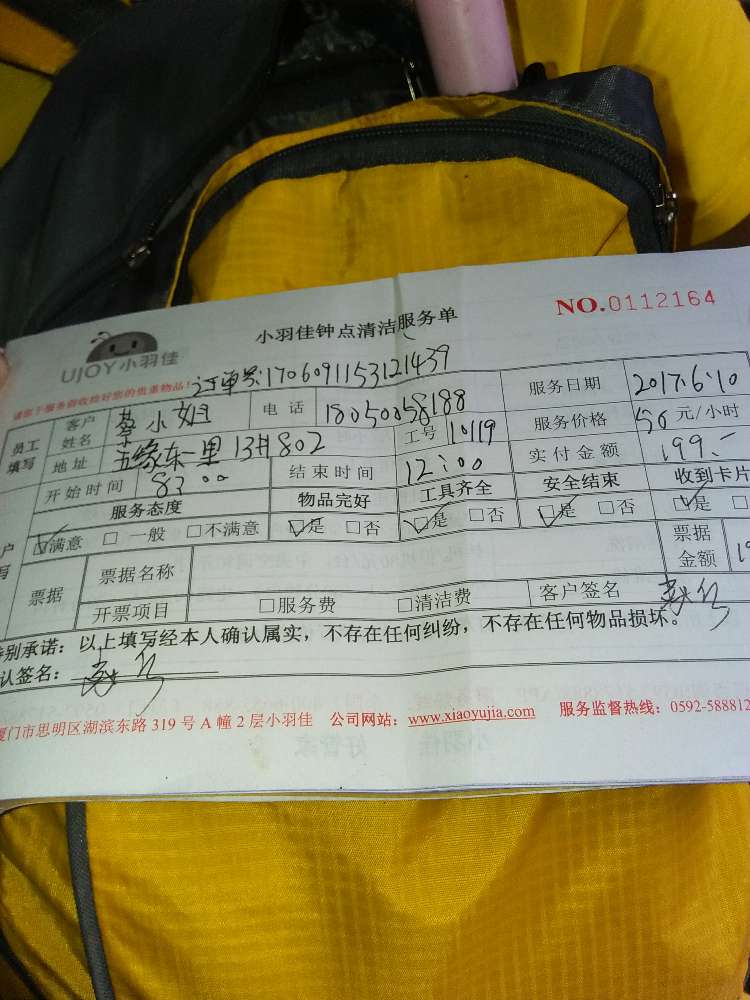 NO.0112164
小羽佳钟点清洁服务单
UJOY小羽佳
订单号:1706091153121439
请您于服务前收拾好您的贵重物品!
员工填写 客户姓名 蔡小姐 电话 18050058188 服务日期 2017.6.10
地址 五缘东一里13#802 工号 10119 服务价格 50元/小时
开始时间 8:00 结束时间 12:00 实付金额 199.-
服务态度 物品完好 工具齐全 安全结束 收到卡片
☑满意 □一般 □不满意 ☑是 □否 ☑是 □否 ☑是 □否 ☑是 □
票据 票据名称 票据金额
开票项目 □服务费 □清洁费 客户签名
别承诺:以上填写经本人确认属实,不存在任何纠纷,不存在任何物品损坏。
认签名:
厦门市思明区湖滨东路319号A幢2层小羽佳 公司网站:www.xiaoyujia.com 服务监督热线:0592-588812